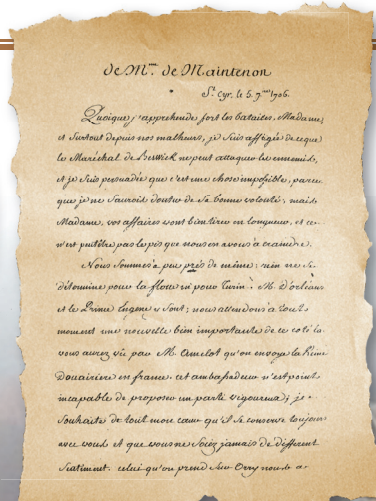 de M.me de Maintenon
St. Cyr, le 5. 7.bre 1706.
Quoique j'apprehende fort les batailes, Madame,
et surtout depuis nos malheurs, je suis affligée de ce que
le Maréchal de Berwick ne peut attaquer les ennemis,
et je suis persuadée que c'est une chose impossible, parce
que je ne saurois douter de sa bonne volonté; mais
Madame, vos affaires vont bien tirer en longueur, et ce
n'est peutêtre pas le pis que nous en avons à craindre.
Nous sommes à peu près de même; rien ne se
détermine pour la flotte ni pour Turin. M. d'orléans
et le Prince Eugene y sont; nous attendons à tout
moment une nouvelle bien importante de ce coté là.
vous aurez vû par M. Amelot qu'on envoya la Reine
Douairiere en france. cet ambassadeur n'est point
incapable de proposer un parti vigoureux; je
souhaite de tout mon cœur qu'il se conserve toujours
avec vous et que vous ne soiez jamais de different
sentiment. celui qu'on prend sur Orry nous a